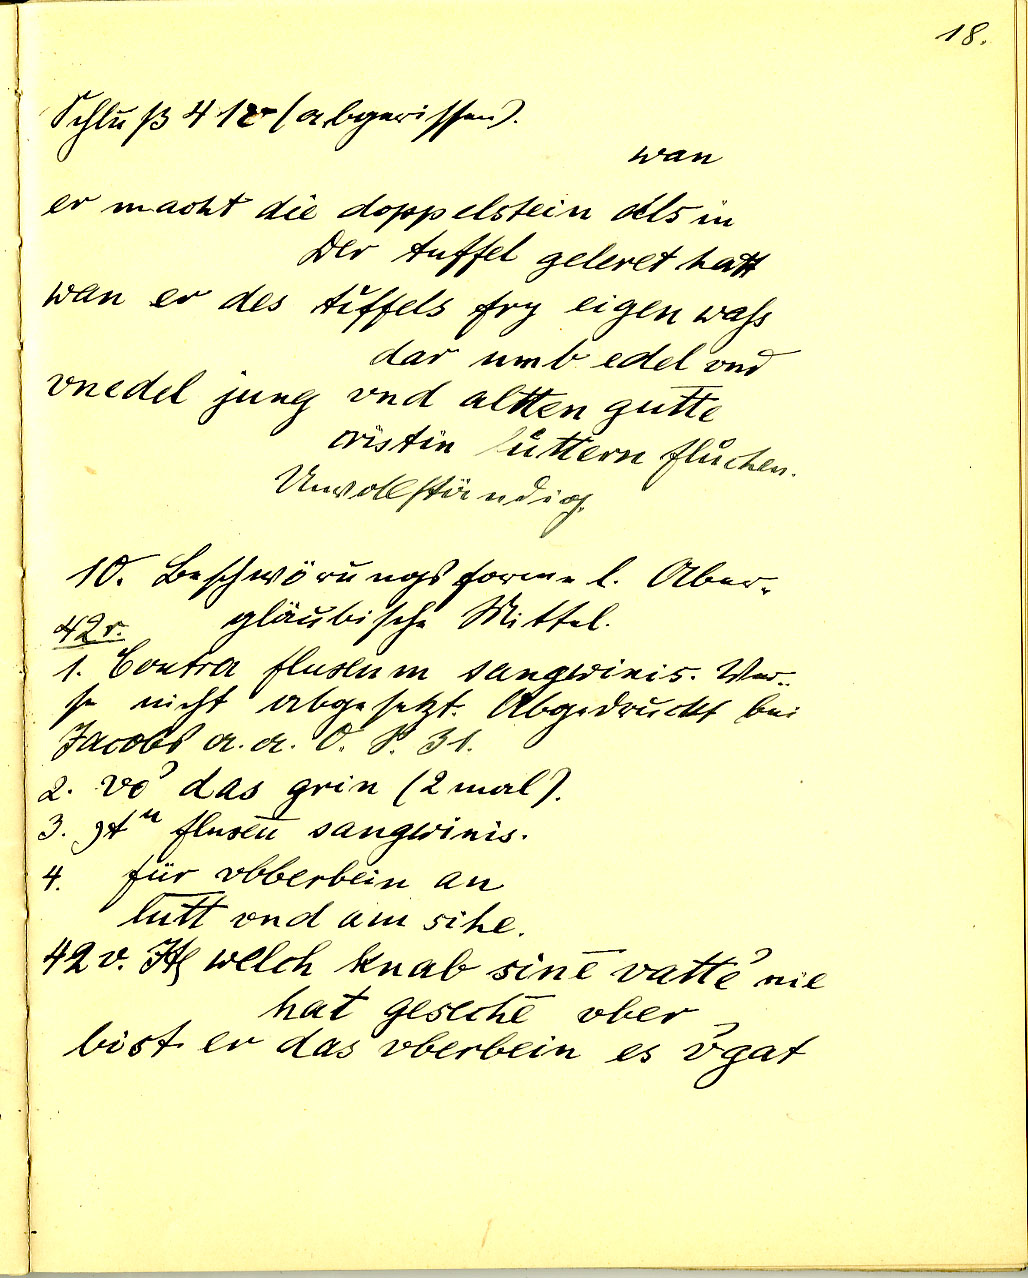 18.
Schluß 41v (abgerissen).
wan
er macht die doppelstein als in
Der tuffel geleret hatt
wan er des tüffels fry eigen waſs
dar umb edel vnd
vnedel jung vnd altten gutte
cristin lüttern flůchen.
Unvollständig.
10. Beschwörungsformel. Aber-
gläubische Mittel.
42r.
1. Contra fluxum sangwinis. Ver-
se nicht abgesetzt. Abgedruckt bei
Jacobs a. a. O. S. 31.
2. vo᾽ das grin (2 mal).
3. fluxū sangwinis.
4. für vbberbein an
lutt vnd am vihe.
42v. welch knab sinē vatte᾽ nie
hat gesechē vber
bist er das vberbein es v᾽gat